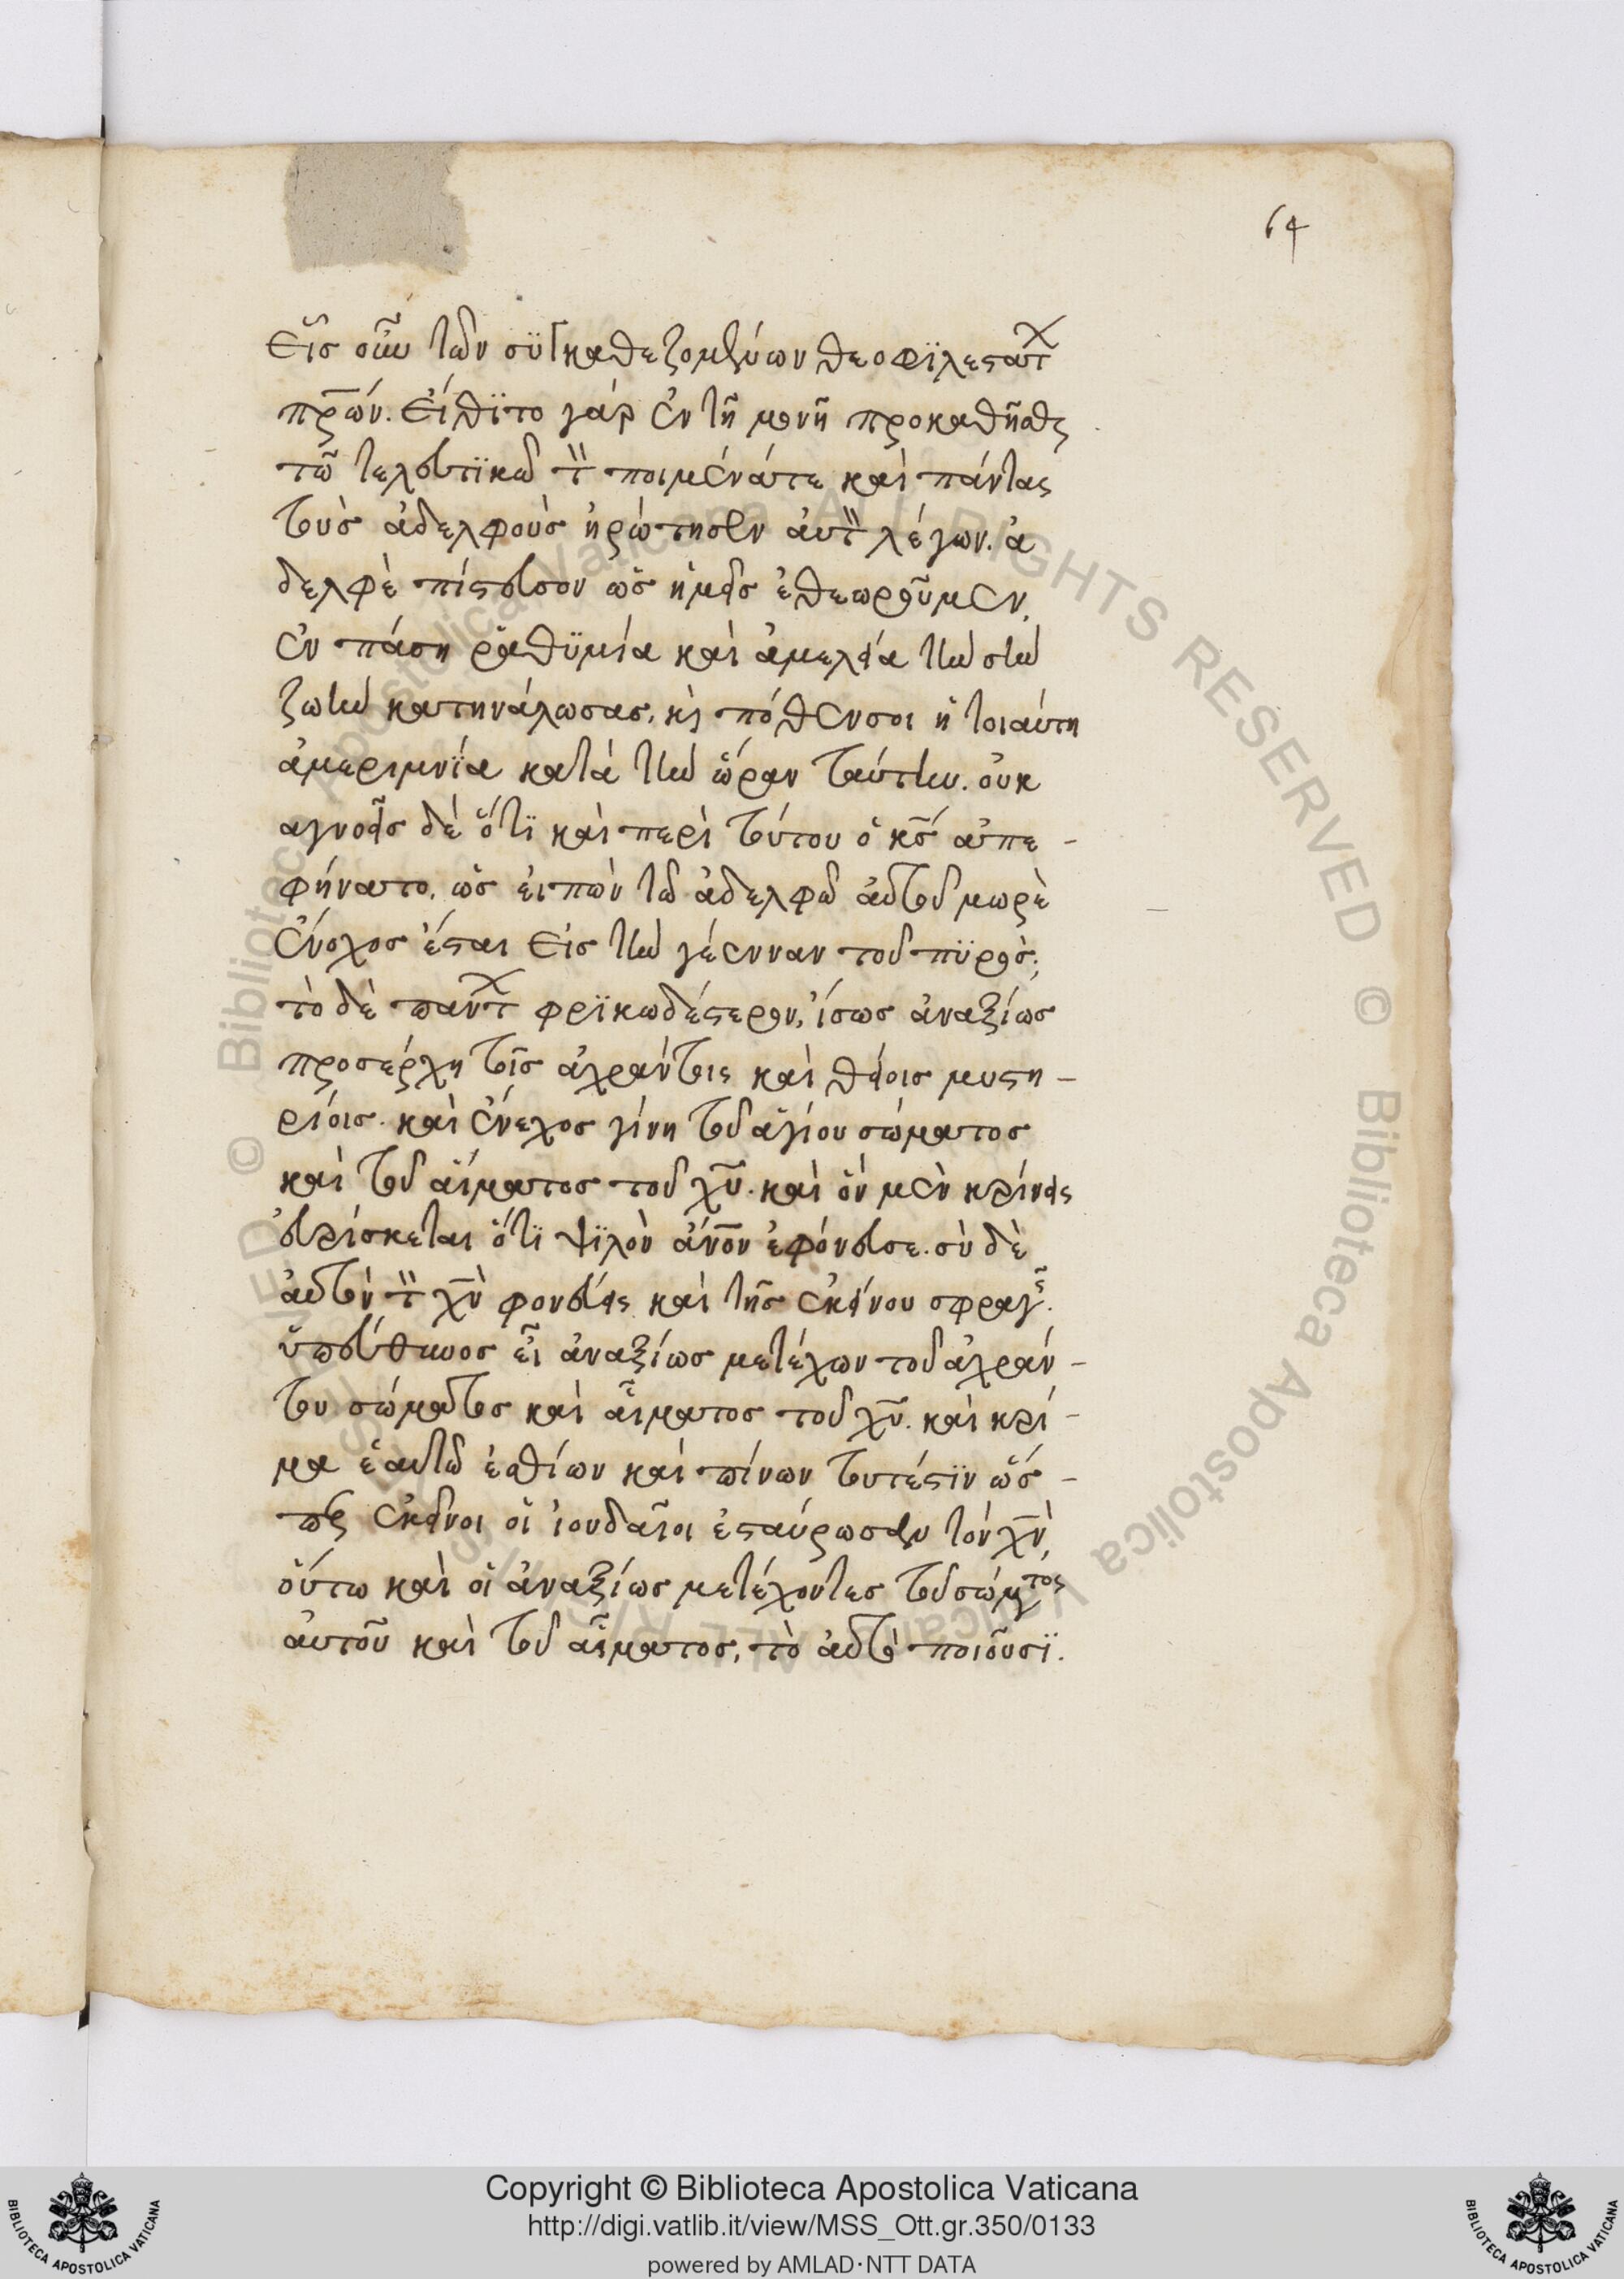 64
Εἷσ οὖν τῶν σϋγκαθεζομένων θεοφϊλεστάτ
πρῶν. Εἴθϊτο γάρ ἐν τῆ μονῆ προκαθῆσθαι
τῶ τελευτϊκῶ τ ποιμένάτε καὶ πάντας
τοὺσ ἀδελφοὺσ ἠρώτησεν ἀυτ λέγων. ἀ
δελφὲ πίστευσον ὡσ ἡμεῖσ ἐθεωροῦμεν,
ἐν πάση ρἁθϋμία καὶ ἀμελεία τὴν σὴν
ζωὴν κατηνάλωσασ, κὶ πόθεν σοι ἡ τοιαύτη
ἀμεριμνϊα κατὰ τὴν ὥραν ταύτην. οὐκ
αγνοεῖσ δὲ ὅτϊ καὶ περὶ τούτου ὁ κσ ἀπε-
φήνατο, ὡσ ἐιπὼν τῶ ἀδελφῶ ἀυτοῦ μωρὲ
ἔνοχοσ ἔσται Εἰσ τὴν γέενναν τοῦ πϋρόσ;
τὸ δὲ πάντ φρϊκωδέστερον, ἴσωσ ἀναξίωσ
προσέρχη τοῖσ ἀχράντοις καὶ θείοισ μυστη-
ρίοισ. καὶ ἔνεχοσ γίνη τοῦ ἁγίου σώματοσ
καὶ τοῦ ἅιματοσ τοῦ χῦ. καὶ ὃν μὲν κρίνεις
ἑυρίσκεται ὅτϊ ψϊλὸν ἄνον ἐφόνευσε. σὺ δὲ
ἀυτὸν τ χν φονεύεις καὶ τῆσ ἐκείνου σφραγ.
ὑπεύθηνοσ εἶ ἀναξίωσ μετέχων τοῦ ἀχράν-
του σώματοσ καὶ αἵματοσ τοῦ χῦ. καὶ κρί-
μα ἑαυτῶ ἐσθίων καὶ πίνων τουτέστϊν ὥσ-
περ ἐκεῖνοι οἱ ἰουδαῖοι ἐσταύρωσαν τὸν χν,
ὅυτω καὶ οἱ ἀναξίωσ μετέχοντεσ τοῦ σώματος
ἀυτοῦ καὶ τοῦ αἵματοσ, τὸ ἀυτὸ ποιοῦσϊ.
© Biblioteca Apostolica Vaticana ALL RIGHTS RESERVED
Copyright © Biblioteca Apostolica Vaticana
http://digi.vatlib.it/view/MSS_Ott.gr.350/0133
powered by AMLAD·NTT DATA
BIBLIOTECA APOSTOLICA VATICANA
BIBLIOTECA APOSTOLICA VATICANA